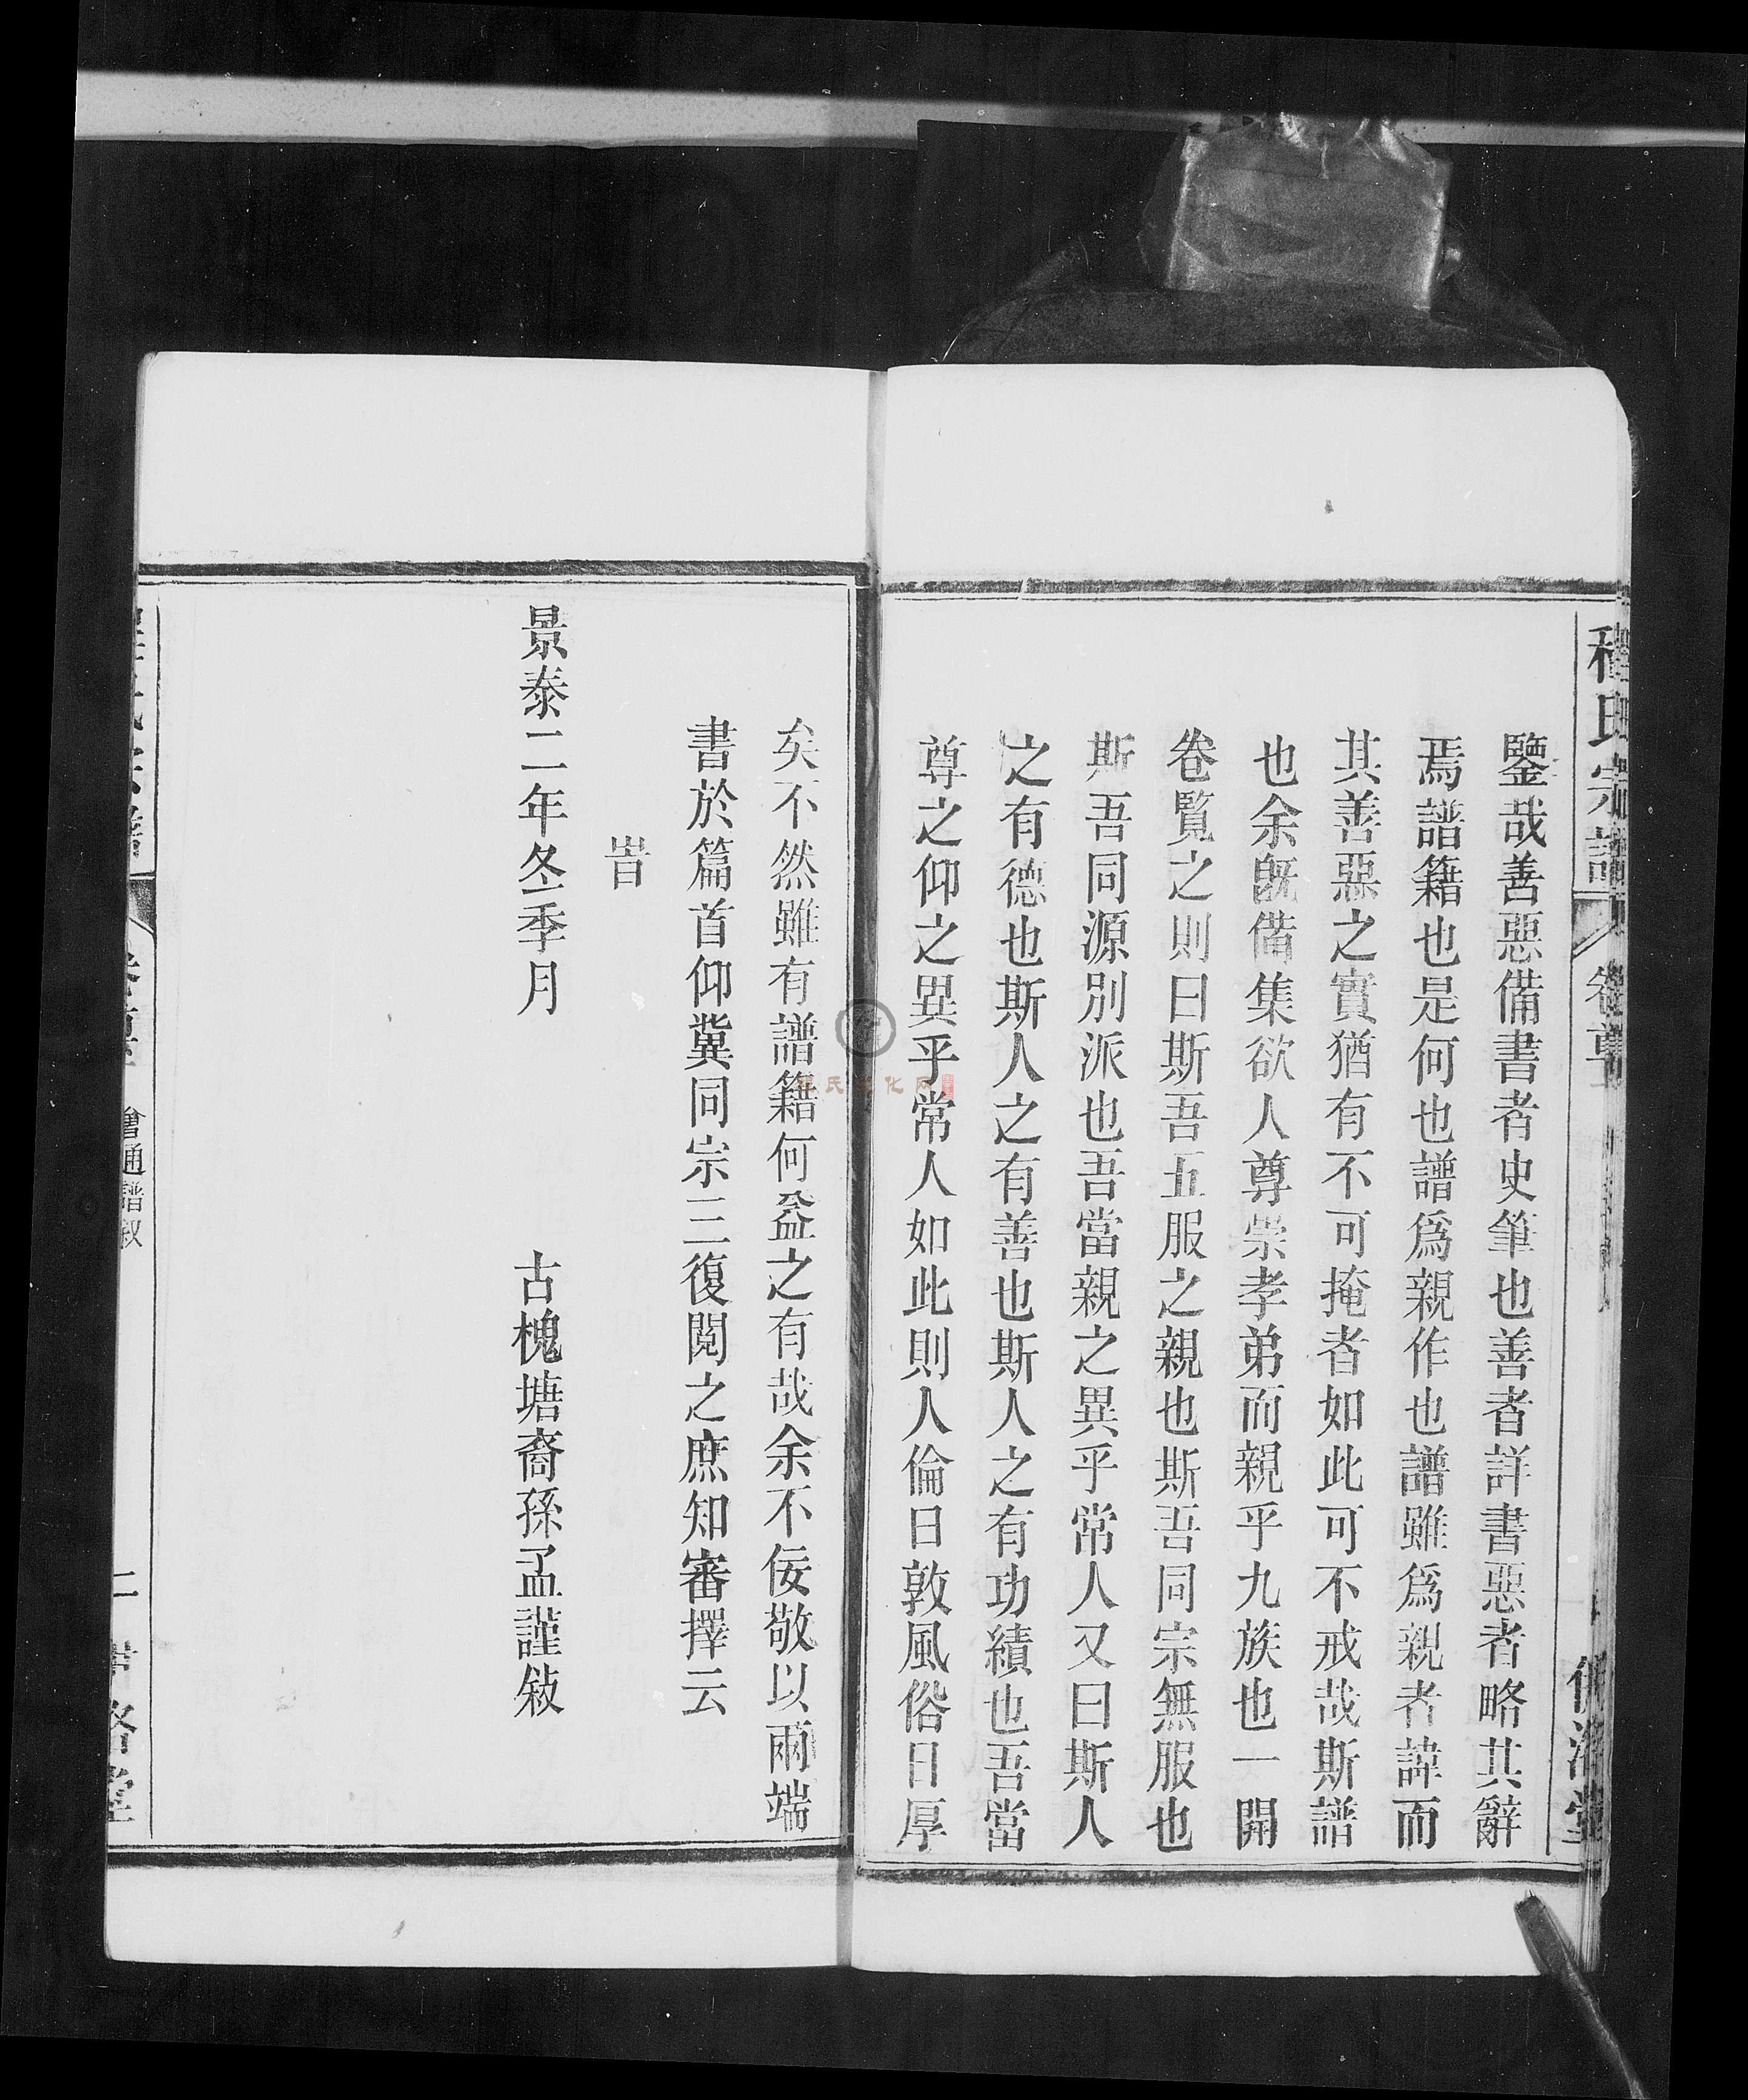 程氏宗譜
卷首
鑒哉善惡備書者史筆也善者詳書惡者略其辭
焉譜籍也是何也譜爲親作也譜雖爲親者諱而
其善惡之實猶有不可掩者如此可不戒哉斯譜
也余旣備集欲人尊崇孝弟而親乎九族也一開
卷覧之則曰斯吾五服之親也斯吾同宗無服也
斯吾同源別派也吾當親之異乎常人又曰斯人
之有德也斯人之有善也斯人之有功績也吾當
尊之仰之異乎常人如此則人倫日敦風俗日厚
矣不然雖有譜籍何益之有哉余不佞敬以兩端
書於篇首仰冀同宗三復閱之庶知審擇云
旹
景泰二年冬季月
古槐塘裔孫孟謹敍
會通譜叙
二